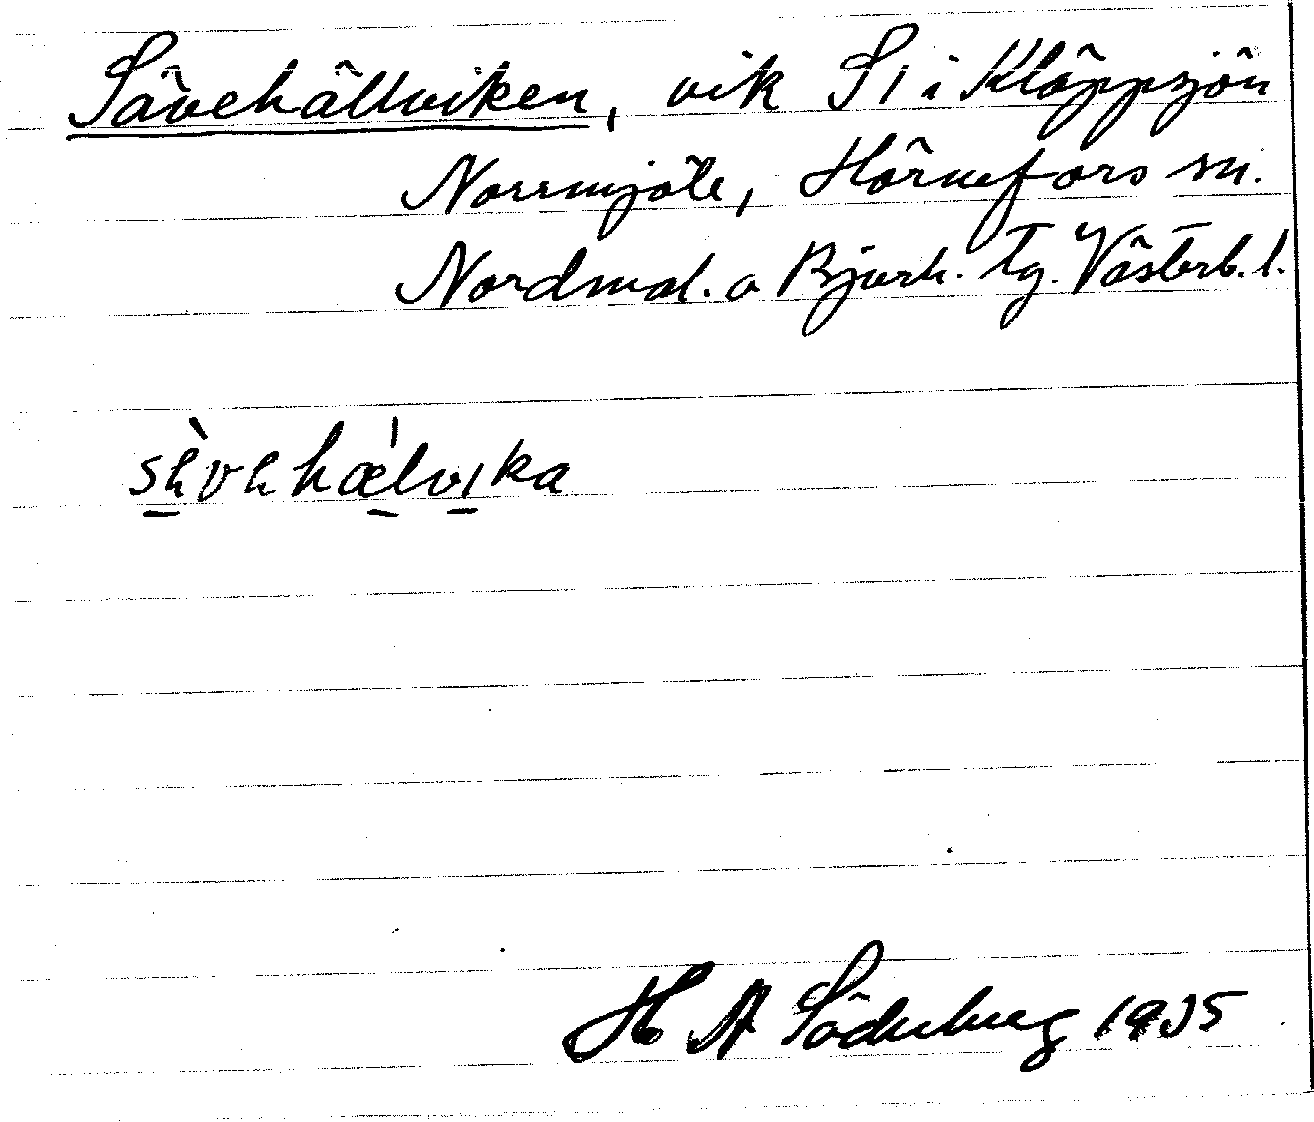 Sävehällviken, vik S i Kläppsjön
Norrmjöle, Hörnefors sn.
Nordmal. o Bjurh. Tg. Västerb. l.
sèvehæ̀lvika
H A Söderberg 1935